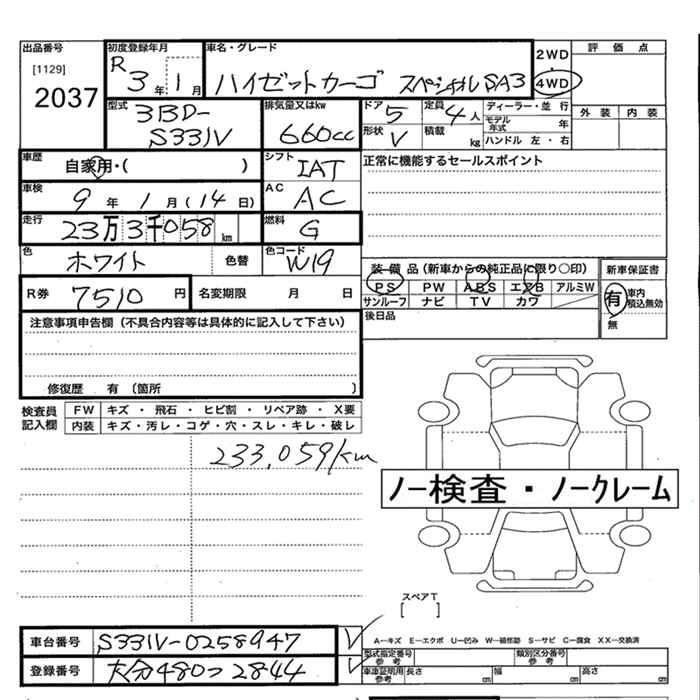 出品番号 初度登録年月 車名・グレード 2WD 評価点
[1129] 2037 R 3年 1月 ハイゼットカーゴ スペシャルSA3 ・ 4WD
型式 3BD-S331V 排気量又はkw 660cc ドア 5 定員 4人 ディーラー・並行 外装 内装
形状 V 積載 kg モデル年式 年
ハンドル 左・右
車歴 自家用・( ) シフト IAT 正常に機能するセールスポイント
車検 9年 1月(14日) AC AC
走行 23万3千058km 燃料 G
色 ホワイト 色替 色コード W19 装備品(新車からの純正品に限り○印) 新車保証書
R券 7510円 名変期限 月 日 PS PW ABS エアB アルミW 有 車内積込無効
サンルーフ ナビ TV カワ 無
注意事項申告欄(不具合内容等は具体的に記入して下さい) 後日品
修復歴 有(箇所 )
検査員記入欄 FW キズ・飛石・ヒビ割・リペア跡・X要
内装 キズ・汚レ・コゲ・穴・スレ・キレ・破レ
233,059km
ノー検査・ノークレーム
スペアT
[ ]
車台番号 S331V-0258947 A-キズ E-エクボ U-凹み W-補修跡 S-サビ C-腐食 XX-交換済
登録番号 大分480つ2844 型式指定番号 参考 類別区分番号 参考
車庫証明用 参考 長さ cm 幅 cm 高さ cm